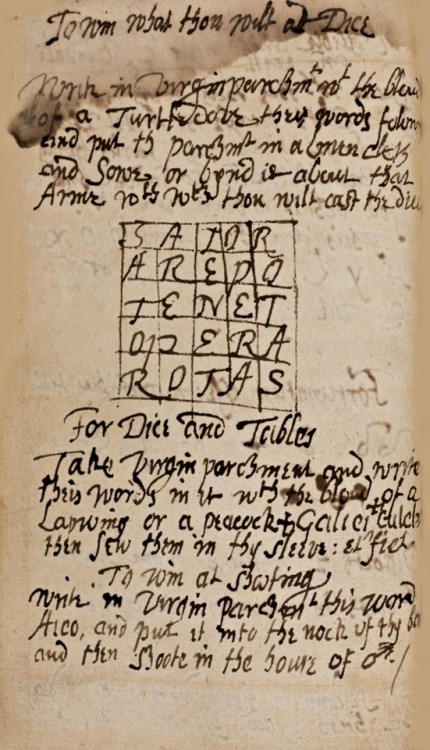 To win what thou wilt at Dice
Write in Virgin parchmt wt the bloud
of a Turtledove theis words folow
and put th parchmt in a linen cloth
and Sowe or bynd it about that
Arme wth wch thou wilt cast the dice
S A T O R
A R E P O
T E N E T
O P E R A
R O T A S
For Dice and Tables
Take Virgin parchment and write
theis words in it wth the bloud of a
Lapwing or a peacock
then sew them in thy sleeve: et fiet
To win at shooting
write in Virgin parchmt this word
Aico, and put it into the nock of thy
and then shoote in the houre of ♂